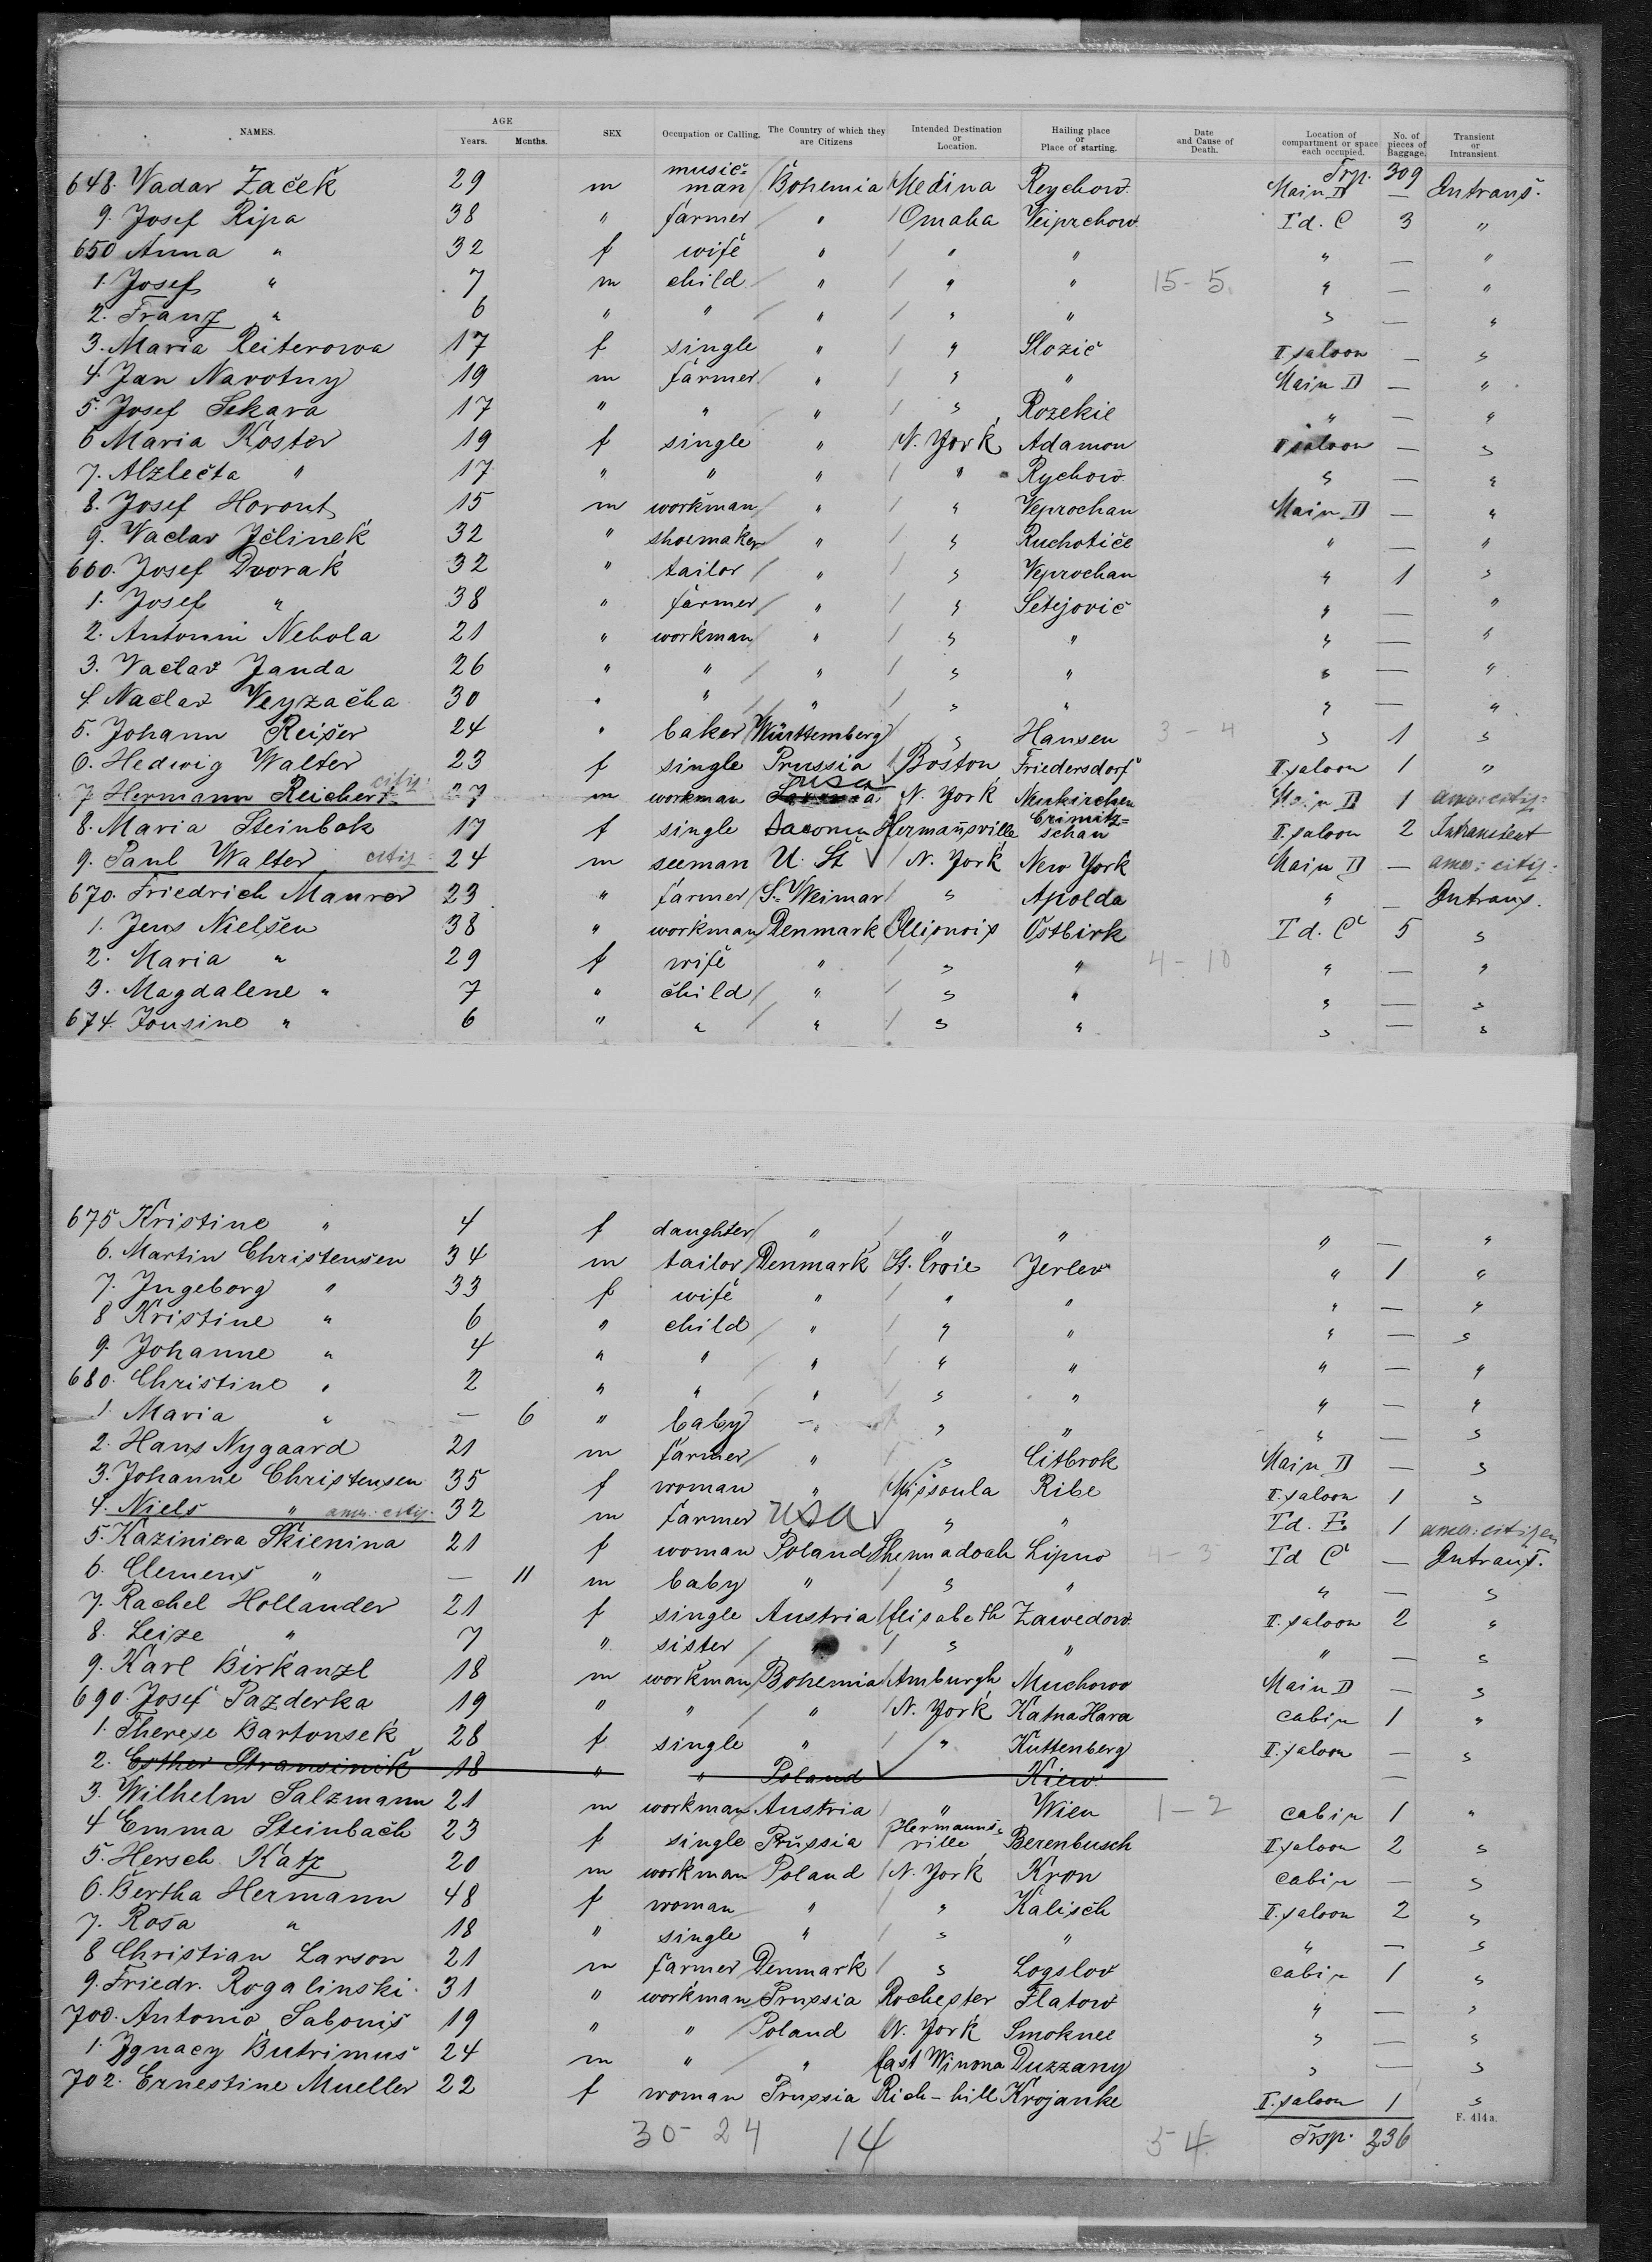 NAMES. AGE Years. Months. SEX Occupation or Calling. The Country of which they are Citizens Intended Destination or Location. Hailing place or Place of starting. Date and Cause of Death. Location of compartment or space each occupied. No. of pieces of Baggage. Transient or Intransient.
Trsp. 309
648. Vadav Začek 29 m musicman Bohemia Medina Reychow Main D — Intrans.
9. Josef Ripa 38 " farmer " Omaha Veiprchow Td. C 3 "
650 Anna " 32 f wife " " " " — "
1. Josef " 7 m child " " " 15-5 " — "
2. Franz " 6 " " " " " " — "
3. Maria Reiterowa 17 f single " " Slozič II. saloon — "
4. Jan Navotny 19 m farmer " " " Main D — "
5. Josef Sekara 17 " " " " Rozekie " — "
6 Maria Koster 19 f single " N. York Adamon II saloon — "
7. Alzlečta " 17 " " " " Rychow " — "
8. Josef Horout 15 m workman " " Veprochan Main D — "
9. Vaclav Jčlinek 32 " shoemaker " " Ruchotiče " — "
660. Josef Dvorak 32 " tailor " " Veprochan " 1 "
1. Josef " 38 " farmer " " Setejovič " — "
2. Antonin Nebola 21 " workman " " " " — "
3. Vaclav Janda 26 " " " " " " — "
4 Vaclav Veyzačka 30 " " " " " " — "
5. Johann Reiser 24 " baker Württemberg " Hansen 3-4 " 1 "
6. Hedwig Walter 23 f single Prussia Boston Friedersdorf II. saloon 1 "
7 Hermann Reichert citiz: 27 m workman USA N. York Neukirchen Main D 1 amer: citiz:
8. Maria Steinbok 17 f single Saconia Hermañsville Crimitzschau II. saloon 2 Intransient
9. Paul Walter citiz: 24 m seeman U. St N. York New York Main D — amer: citiz:
670. Friedrich Maurer 23 " farmer S. Weimar " Apolda " — Intrans.
1. Jens Nielsen 38 " workman Denmark Illinois Ostbirk Td. C 5 "
2. Maria " 29 f wife " " " 4-10 " — "
3. Magdalene " 7 " child " " " " — "
674. Jousine " 6 " " " " " " — "
675 Kristine " 4 f daughter " " " " — "
6. Martin Christensen 34 m tailor Denmark St. Croie Jerlev " 1 "
7. Ingeborg " 33 f wife " " " " — "
8 Kristine " 6 " child " " " " — "
9. Johanne " 4 " " " " " " — "
680. Christine " 2 " " " " " " — "
1. Maria " — 6 " baby " " " " — "
2. Hans Nygaard 21 m farmer " " Citbrok Main D — "
3. Johanne Christensen 35 f woman " Missoula Ribe II. saloon 1 "
4. Niels " amer. citiz. 32 m farmer USA " " Td. E 1 amer: citizen
5. Kaziniera Skienina 21 f woman Poland Shennadoah Lipno 4-3 Td C — Intrans.
6. Clemens " — 11 m baby " " " " — "
7. Rachel Hollander 21 f single Austria Elisabeth Zawedow II. saloon 2 "
8. Leize " 7 " sister " " " " — "
9. Karl Birkanzl 18 m workman Bohemia Amburgh Muchowo Main D — "
690. Josef Pazderka 19 " " " N. York Katna Hara cabin 1 "
1. Therese Bartonsek 28 f single " " Kuttenberg II. saloon — "
2. Esther Stransinik 18 " " Poland Kiew —
3. Wilhelm Salzmann 21 m workman Austria " Wien 1-2 cabin 1 "
4 Emma Steinbach 23 f single Prussia Hermannsville Berenbusch II saloon 2 "
5. Hersch Katz 20 m workman Poland N. York Kron cabin — "
6. Bertha Hermann 48 f woman " " Kalisch II. saloon 2 "
7. Rosa " 18 " single " " " " — "
8 Christian Larson 21 m farmer Denmark " Logslov cabin 1 "
9. Friedr. Rogalinski 31 " workman Prussia Rochester Flatow " — "
700. Antonio Sabonis 19 " " Poland N. York Smoknee " — "
1. Ignacy Butrimus 24 m " " East Winona Duzzany " — "
702. Ernestine Mueller 22 f woman Prussia Rich-hill Krojanke II. saloon 1 "
F. 414a.
30-24 14 54 Trsp. 336